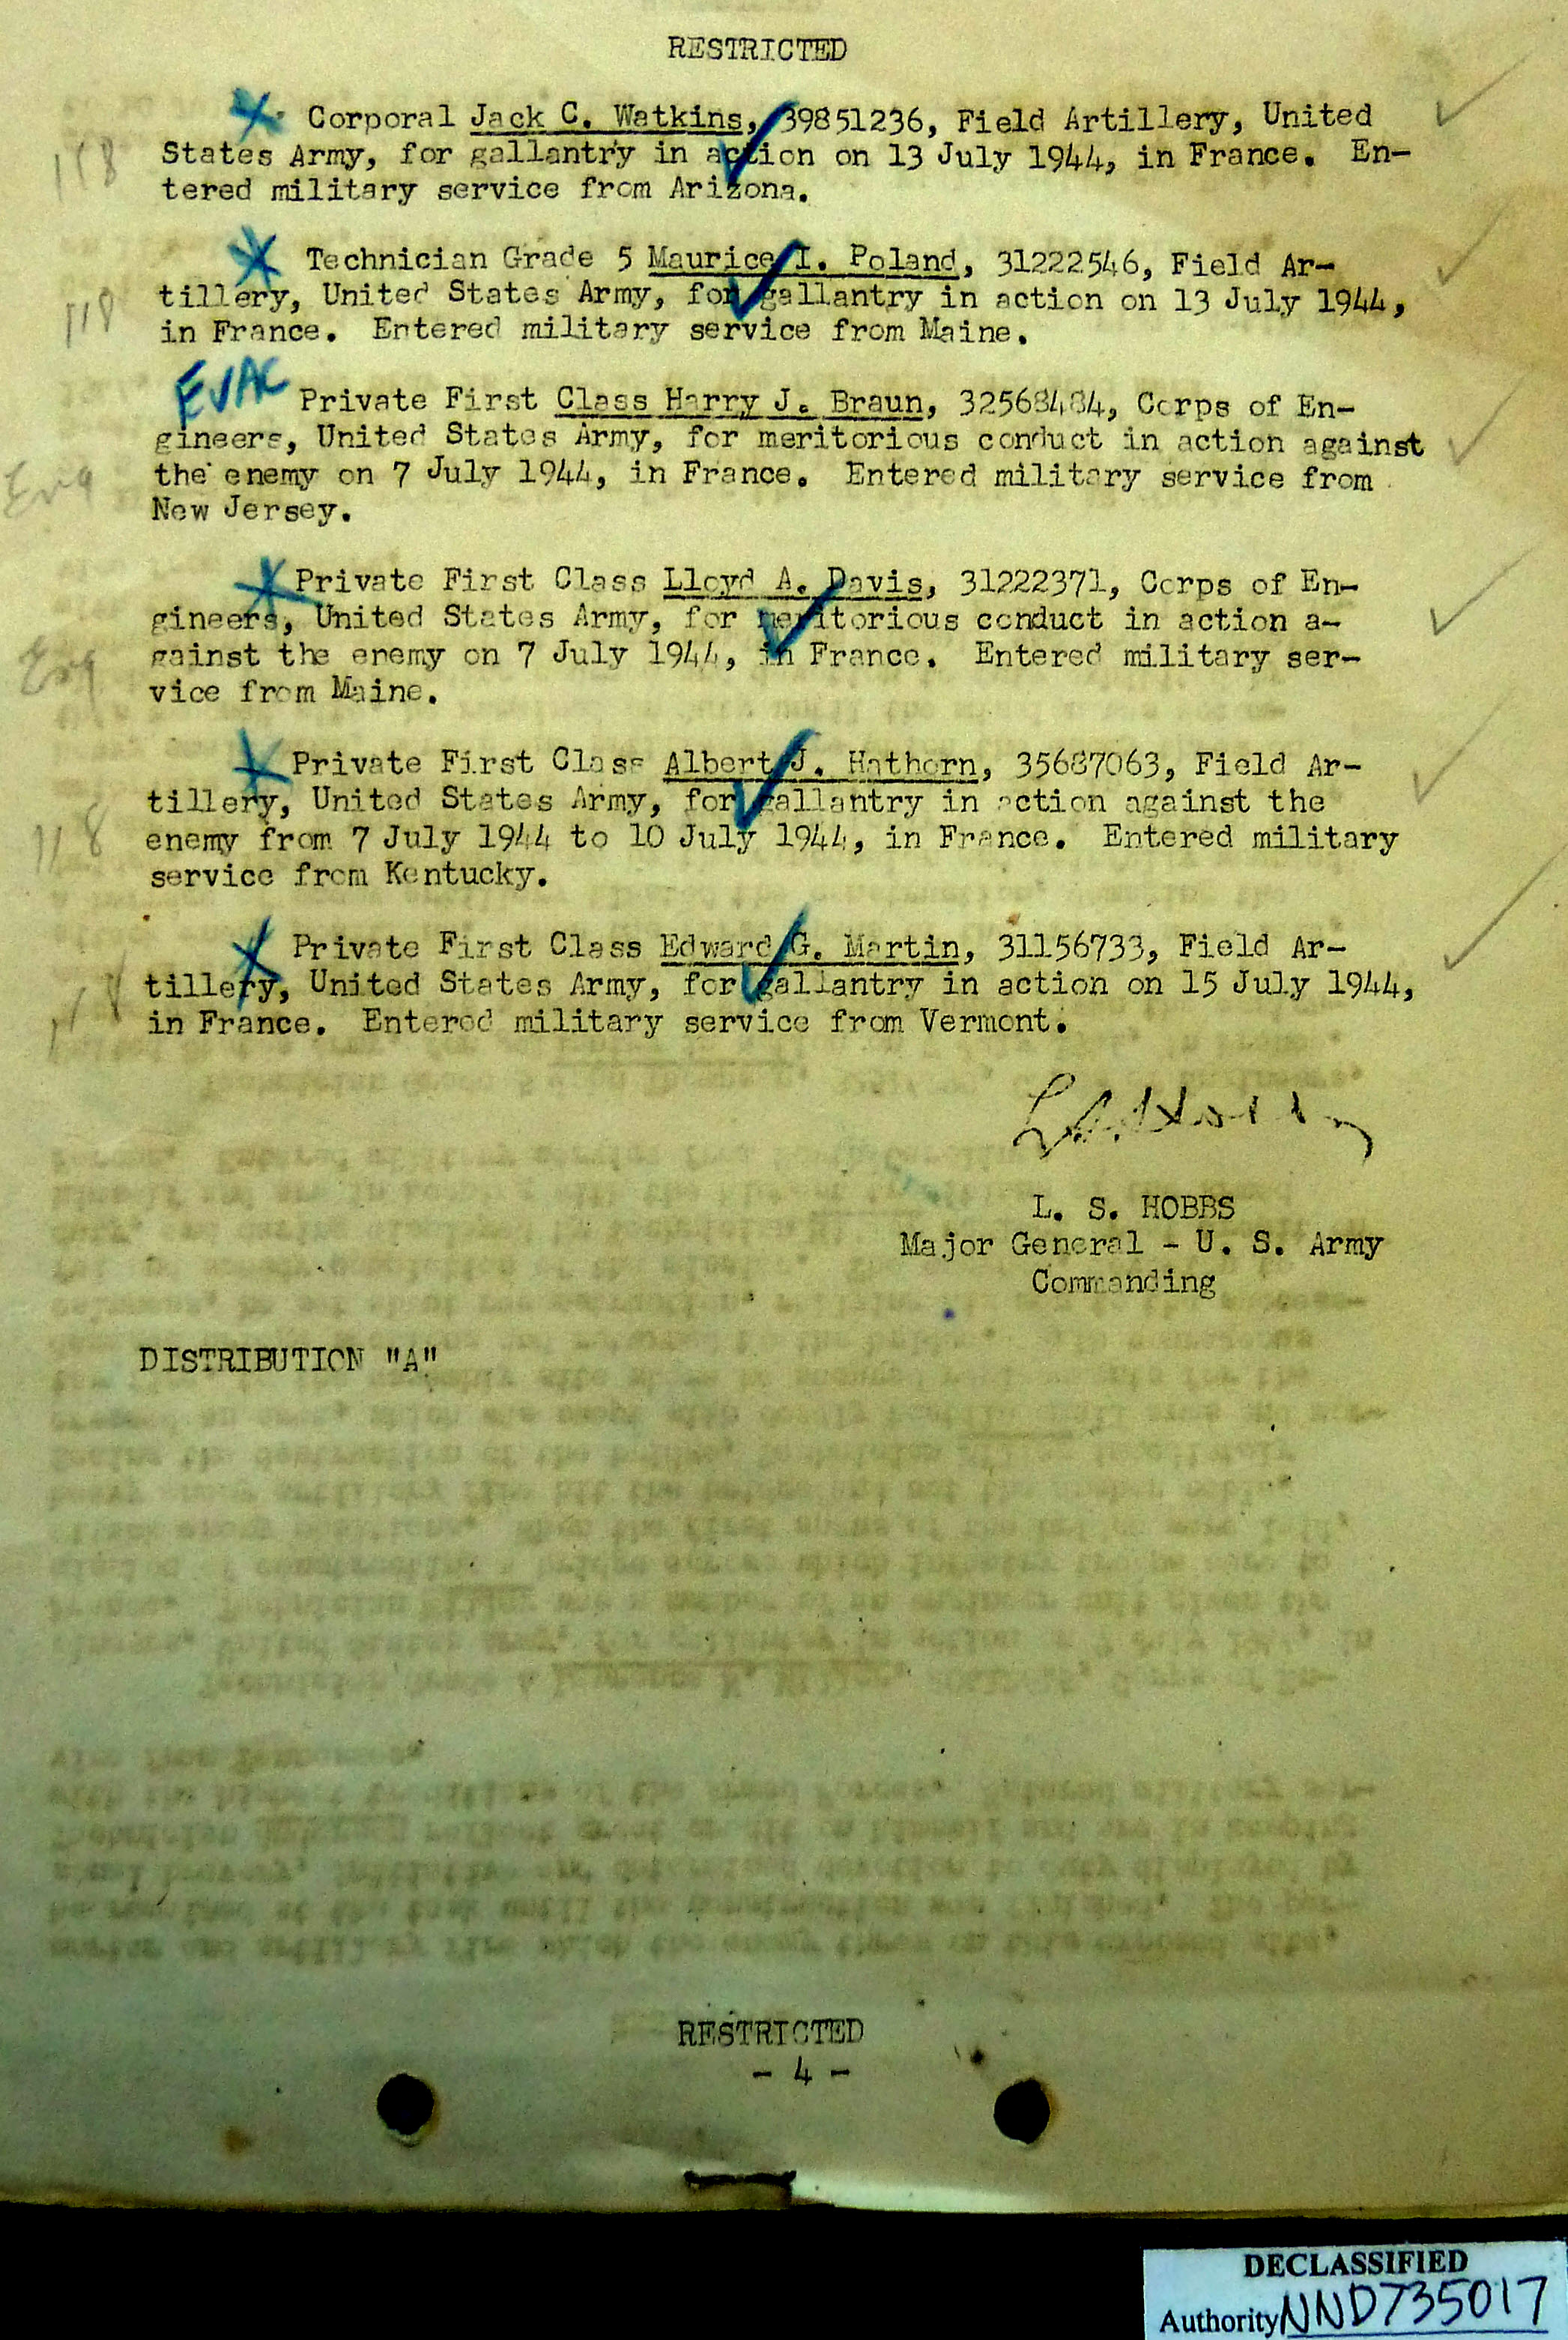 RESTRICTED
Corporal Jack C. Watkins, 39851236, Field Artillery, United
118
States Army, for gallantry in action on 13 July 1944, in France. En-
tered military service from Arizona.
Technician Grade 5 Maurice I. Poland, 31222546, Field Ar-
tillery, United States Army, for gallantry in action on 13 July 1944,
118
in France. Entered military service from Maine.
EVAC
Private First Class Harry J. Braun, 32568484, Corps of En-
gineers, United States Army, for meritorious conduct in action against
the enemy on 7 July 1944, in France. Entered military service from
Eng
New Jersey.
Private First Class Lloyd A. Davis, 31222371, Corps of En-
gineers, United States Army, for meritorious conduct in action a-
gainst the enemy on 7 July 1944, in France. Entered military ser-
Eng
vice from Maine.
Private First Class Albert J. Hathorn, 35687063, Field Ar-
tillery, United States Army, for gallantry in action against the
118
enemy from 7 July 1944 to 10 July 1944, in France. Entered military
service from Kentucky.
Private First Class Edward G. Martin, 31156733, Field Ar-
tillery, United States Army, for gallantry in action on 15 July 1944,
118
in France. Entered military service from Vermont.
L. S. HOBBS
Major General - U. S. Army
Commanding
DISTRIBUTION "A"
RESTRICTED
- 4 -
DECLASSIFIED
Authority NND735017